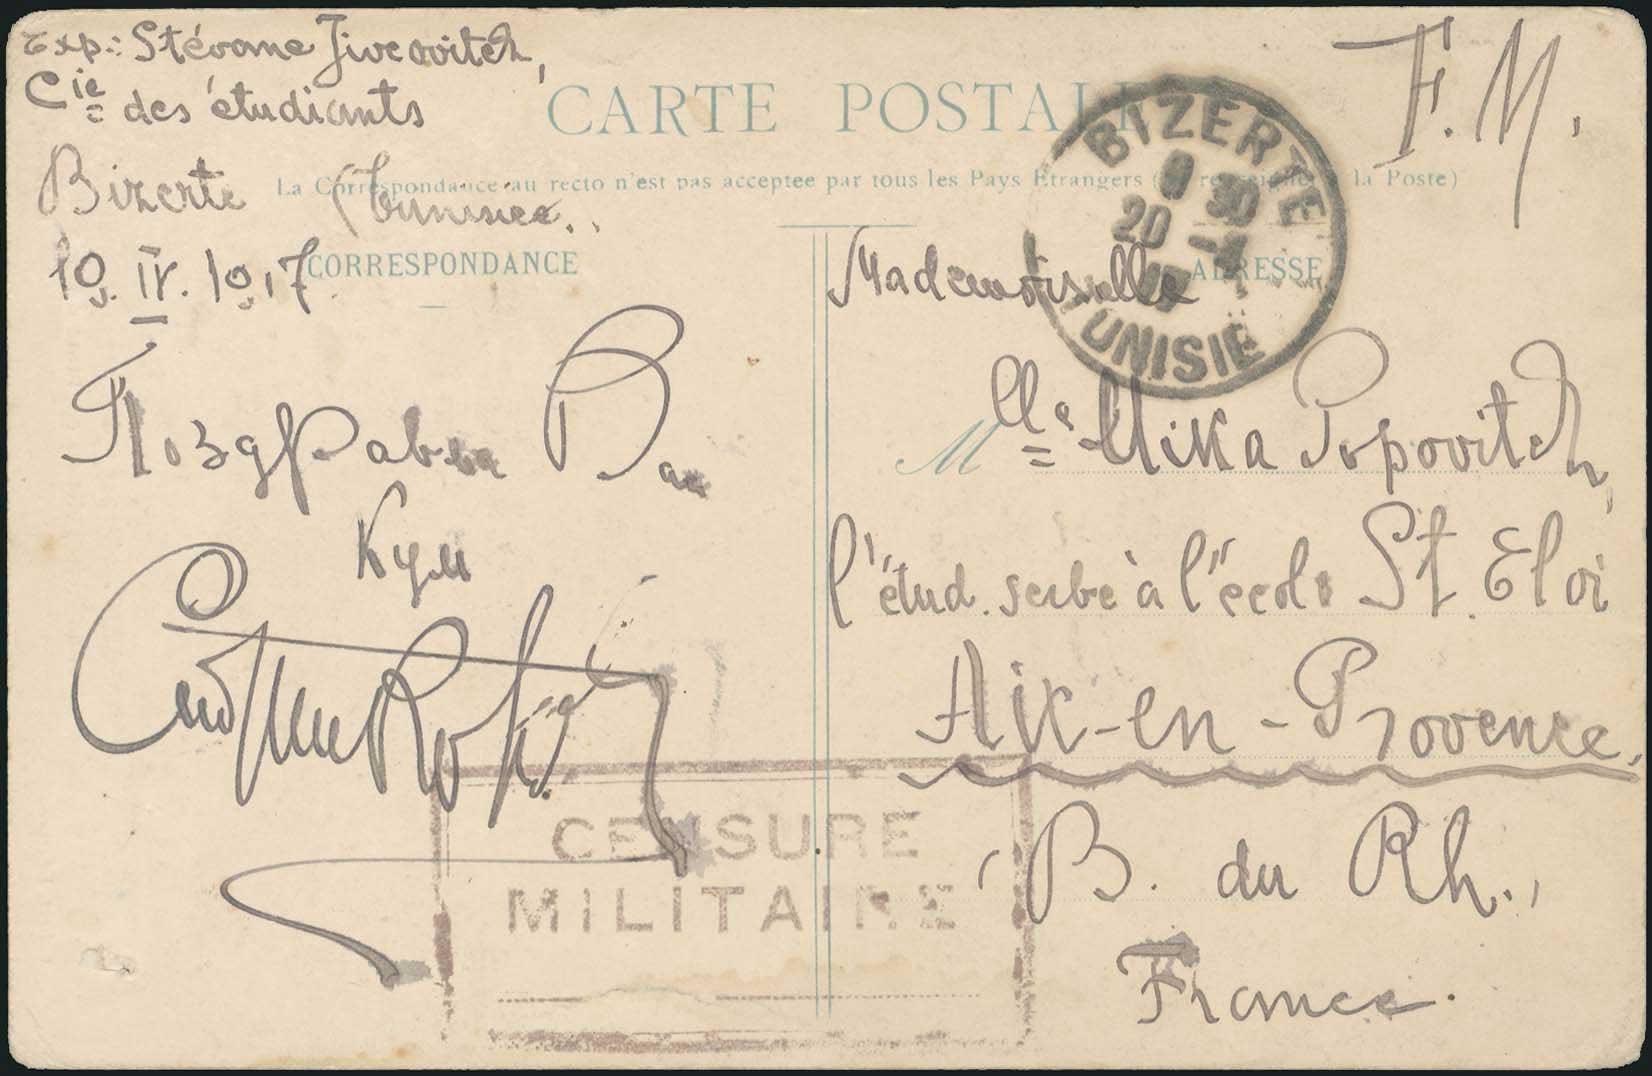 Exp.: Stévane Jivcovitch,
Cie des étudiants
Bizerte (Tunisie.
19. IV. 1917
CARTE POSTALE
F. M.
La Correspondance au recto n'est pas acceptée par tous les Pays Etrangers (Se renseigner à la Poste)
CORRESPONDANCE
ADRESSE
BIZERTE
9 30
20 -4
17
TUNISIE
Поздравља Вас
Кум
Mademoiselle
Mlle Mika Popovitch,
l'étud. serbe à l'école St. Eloi
Aix-en-Provence,
(B. du Rh.,
France.
CENSURE
MILITAIRE